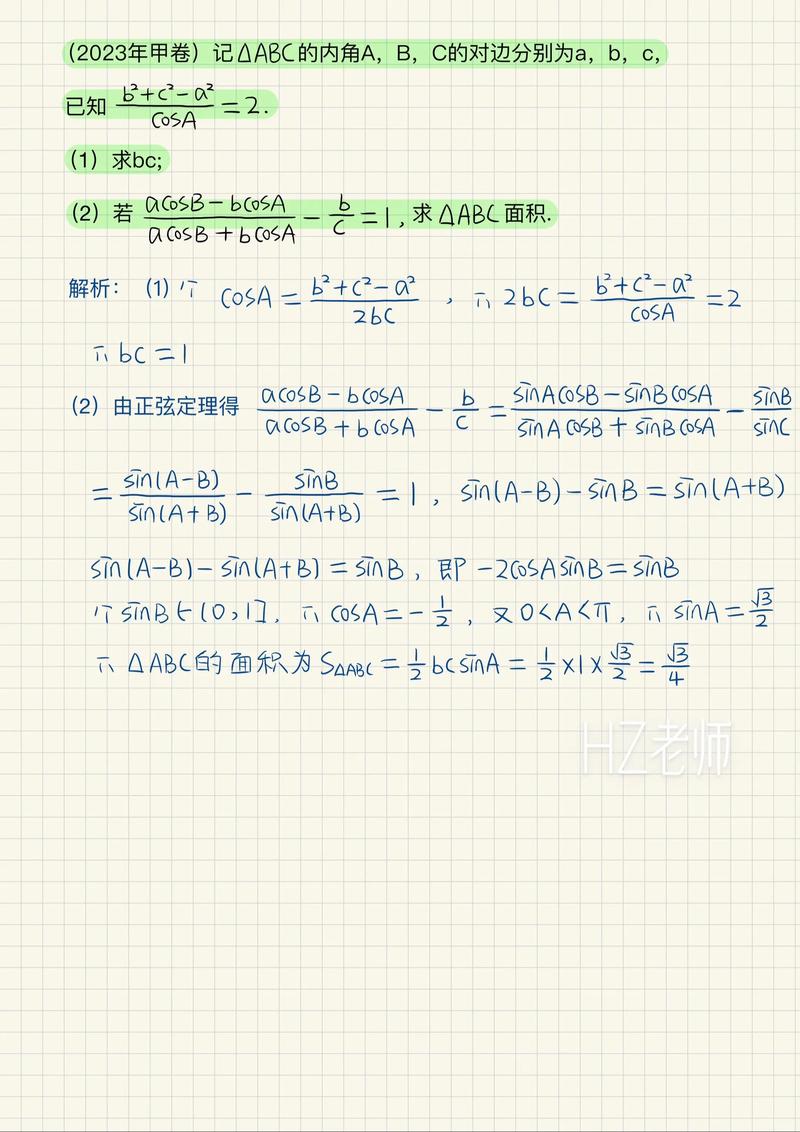 (2023年甲卷) 记△ABC的内角A, B, C的对边分别为a, b, c,
已知 (b²+c²-a²)/cosA = 2.
(1) 求bc;
(2) 若 (acosB-bcosA)/(acosB+bcosA) - b/c = 1, 求△ABC面积.
解析: (1) ∵ cosA = (b²+c²-a²)/2bc , ∴ 2bc = (b²+c²-a²)/cosA = 2
∴ bc = 1
(2) 由正弦定理得 (acosB-bcosA)/(acosB+bcosA) - b/c = (sinAcosB-sinBcosA)/(sinAcosB+sinBcosA) - sinB/sinC
= sin(A-B)/sin(A+B) - sinB/sin(A+B) = 1, sin(A-B)-sinB = sin(A+B)
sin(A-B)-sin(A+B) = sinB, 即 -2cosAsinB = sinB
∵ sinB∈(0,1], ∴ cosA = -1/2, 又0<A<π, ∴ sinA = √3/2
∴ △ABC的面积为S△ABC = 1/2bcsinA = 1/2×1×√3/2 = √3/4
HZ老师